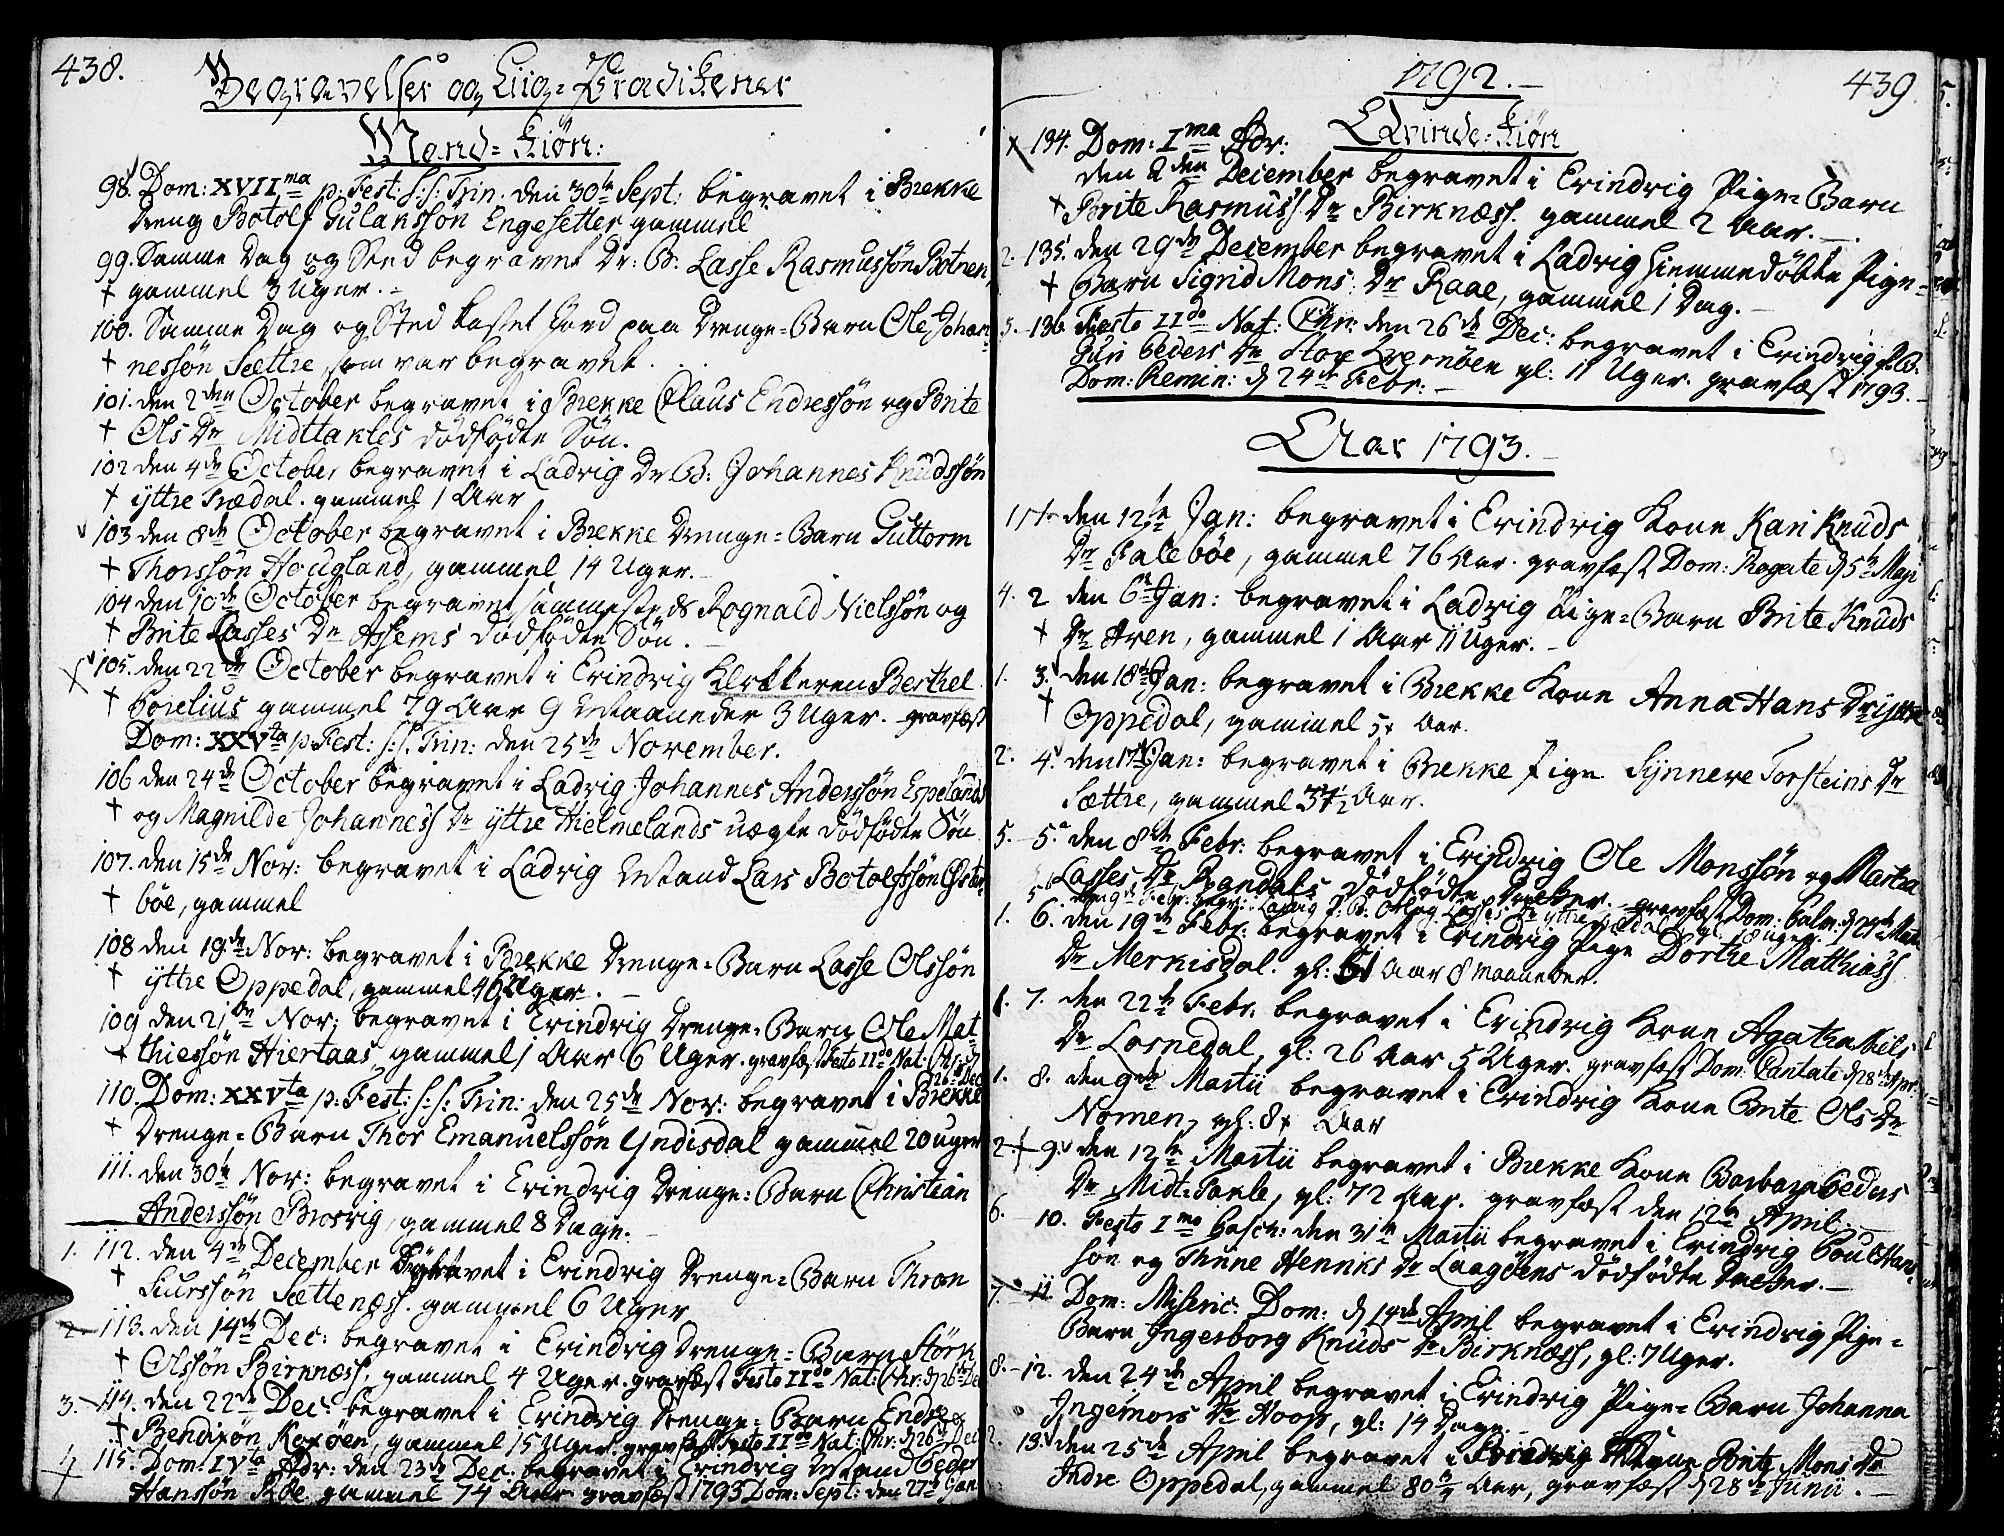 438.
Begravelser og Liig-Prædikener
Mand-Kiøn:
98. Dom: XVII ma p: Fest: s: s: Trin: den 30te Sept: begravet i Brekke
Dreng Botolf Gulakssøn Engesetter gammel
99. Samme Dag og Sted begravet Dr: B. Lasse Rasmussøn Botnen,
† gammel 3 Uger.
100. Samme Dag og Sted kastet Jord paa Drenge-Barn Ole Johan-
† nessøn Sættre, som var begravet.
101. den 2den October begravet i Brekke Claus Endressøn og Brite
† Ols Dr Midttakles dødfødte Søn.
102 den 4de October begravet i Ladvig Dr B: Johannes Knudssøn
† yttre Trædal. gammel 1 Aar
103 den 8de October begravet i Brekke Drenge-Barn Guttorm
† Thorssøn Hougland, gammel 14 Uger.
104 den 10de October begravet sammesteds Rognald Nielssøn og
† Brite Lasses Dr Assems dødfødte Søn.
105. den 22de October begravet i Evindvig Klokkeren Berthel
† Borelius gammel 79 Aar 9 Maaneder 3 Uger. gravfæst
Dom: XXVta p: Fest: s: s. Trin: den 25de November.
106 den 24de October begravet i Ladvig Johannes Anderssøn Espelands
† og Magnilde Johanness Dr yttre Hielmelands uægte dødfødte Søn
107. den 15de Nov: begravet i Ladvig Mand Lars Botolfssøn Øster-
† bøe, gammel
108 den 19de Nov: begravet i Brekke Drenge-Barn Lasse Olssøn
† yttre Oppedal, gammel 46 Uger.
109 den 21de Nov: begravet i Evindvig Drenge-Barn Ole Mat-
† thiessøn Hiertaas, gammel 1 Aar 6 Uger. gravfæst Festo IIdo Nat: Chr: d
26de Dec
110. Dom: XXVta p: Fest: s: s: Trin: den 25de Nov: begravet i Brekke
† Drenge-Barn Thor Emanuelssøn Yndisdal gammel 20 uger
111. den 30te Nov: begravet i Evindvig Drenge-Barn Christian
Anderssøn Brosvig, gammel 8 Dage.
1. 112. den 4de December begravet i Evindvig Drenge-Barn Thron
† Siurssøn Sættenæss. gammel 6 Uger
2. 113. den 14de Dec: begravet i Evindvig Drenge-Barn Størk
† Olssøn Birknæss, gammel 4 Uger. gravfæst Festo IIdo Nat: Chr: d 26de De
3. 114. den 22de Dec: begravet i Evindvig Drenge-Barn Endre
† Bendixøn Koxøen, gammel 15 Uger. gravfæst Festo IIdo Nat: Chr: d 26de Dec
4 115. Dom: IVta Adv: den 23de Dec: begravet i Evindvig Mand Peder
Hanssøn Røe gammel 74 Aar gravfæst 1793 Dom: Sept: den 27de Jan
1792.
439
Qvinde-Kiøn
134. Dom: Ima Adv:
den 2den December begravet i Evindvig Pige-Barn
† Brite Rasmuss: Dr Birknæss. gammel 2 Aar.
2. 135. den 29de December begravet i Ladvig hiemmedøbte Pige-
† Barn Sigrid Mons: Dr Raae, gammel 1 Dag.
3. 136 Festo IIdo Nat: Chr: den 26de Dec: begravet i Evindvig P. B.
Guri Peders Dr Store Qvernøen gl: 11 Uger. gravfæst 1793.
Dom: Remin: d 24de Febr:
Aar 1793.
1. den 12te Jan: begravet i Evindvig Kone Kari Knuds
Dr Taleböe, gammel 76 Aar. gravfæst Dom: Rogate d 5te Maji
4. 2 den 6te Jan: begravet i Ladvig Pige-Barn Brite Knuds
† Dr Aren, gammel 1 Aar 11 Uger.
1. 3. den 18de Jan: begravet i Brekke Kone Anna Hans Dr yttre
† Oppedal, gammel 5 Aar.
2. 4. den 17de Jan: begravet i Brekke Pige Synneve Torsteins Dr
Sættre, gammel 37½ Aar.
5. 5.a den 8de Febr: begravet i Evindvig Ole Monssøn og Martha
Lasses Dr Randals dødfødte Datter. gravfæst Dom: Palm: d 24de Mart
5b den 9de Febr: begr: i Ladvig P. B. Lasses Dr yttre Trædal, gl: 18 uger.
1. 6. den 19de Febr: begravet i Evindvig Pige Dorthe Matthiass
Dr Merkisdal. gl: 61 Aar 8 maaneder.
1. 7. den 22de Febr. begravet i Evindvig Kone Agatha Niels
Dr Losnedal, gl: 26 Aar 5 Uger. gravfæst Dom: Cantate d 28de Apr:
1. 8. den 9de Martii begravet i Evindvig Kone Brite Ols Dr
Nomen, gl: 8 Aar
2 † 9. den 12te Martii begravet i Brekke Kone Barbara Peders
Dr Midt-Takle, gl: 72 Aar. gravfæst den 12te April.
6. 10. Festo Imo Pasch: den 31te Martii begravet i Evindvig Poul Hans-
søn og Thrine Henriks Dr Laagøens dødfødte Datter.
7. 11 Dom: Miseric: Dom: d 14de April begravet i Evindvig Pige-
Barn Ingeborg Knuds Dr Birknæss, gl: 7 Uger.
8. 12. den 24de April begravet i Evindvig Pige-Barn Johanna
Ingemors Dr Noop, gl: 14 Dage.
2. 13. den 25de April begravet i Kone Brite Mons Dr
Indre Oppedal, gammel 80 Aar, gravfæst d 28de Junii.